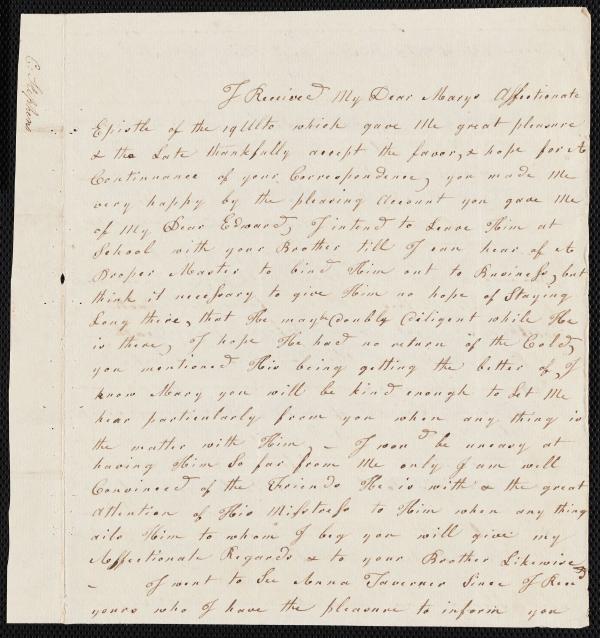 C. Stephens
I Received My Dear Marys Affectionate
Epistle of the 19 Ullto which gave Me great pleasure
& tho Late thankfully accept the favor, & hope for A
Continuance of your Correspondence, you made Me
very happy by the pleasing Account you gave Me
of My Dear Edward, I intend to Leave Him at
School with your Brother till I can hear of A
Proper Master to bind Him out to Business, but
think it necessary to give Him no hope of Staying
Long there, that He may be doubly diligent while He
is there, I hope He had no return of the Cold,
you mentioned His being getting the better of, I
know Mary you will be kind enough to Let Me
hear particularly from you when any thing is
the matter with Him, – I wou'd be uneasy at
having Him So far from Me only I am well
Convinced of the Friends He is with & the great
Attention of His Misstress to Him when any thing
ails Him to whom I beg you will give my
Affectionate Regards & to your Brother Likewise
– I went to See Anna Taverner Since I Rec'd
yours who I have the pleasure to inform you